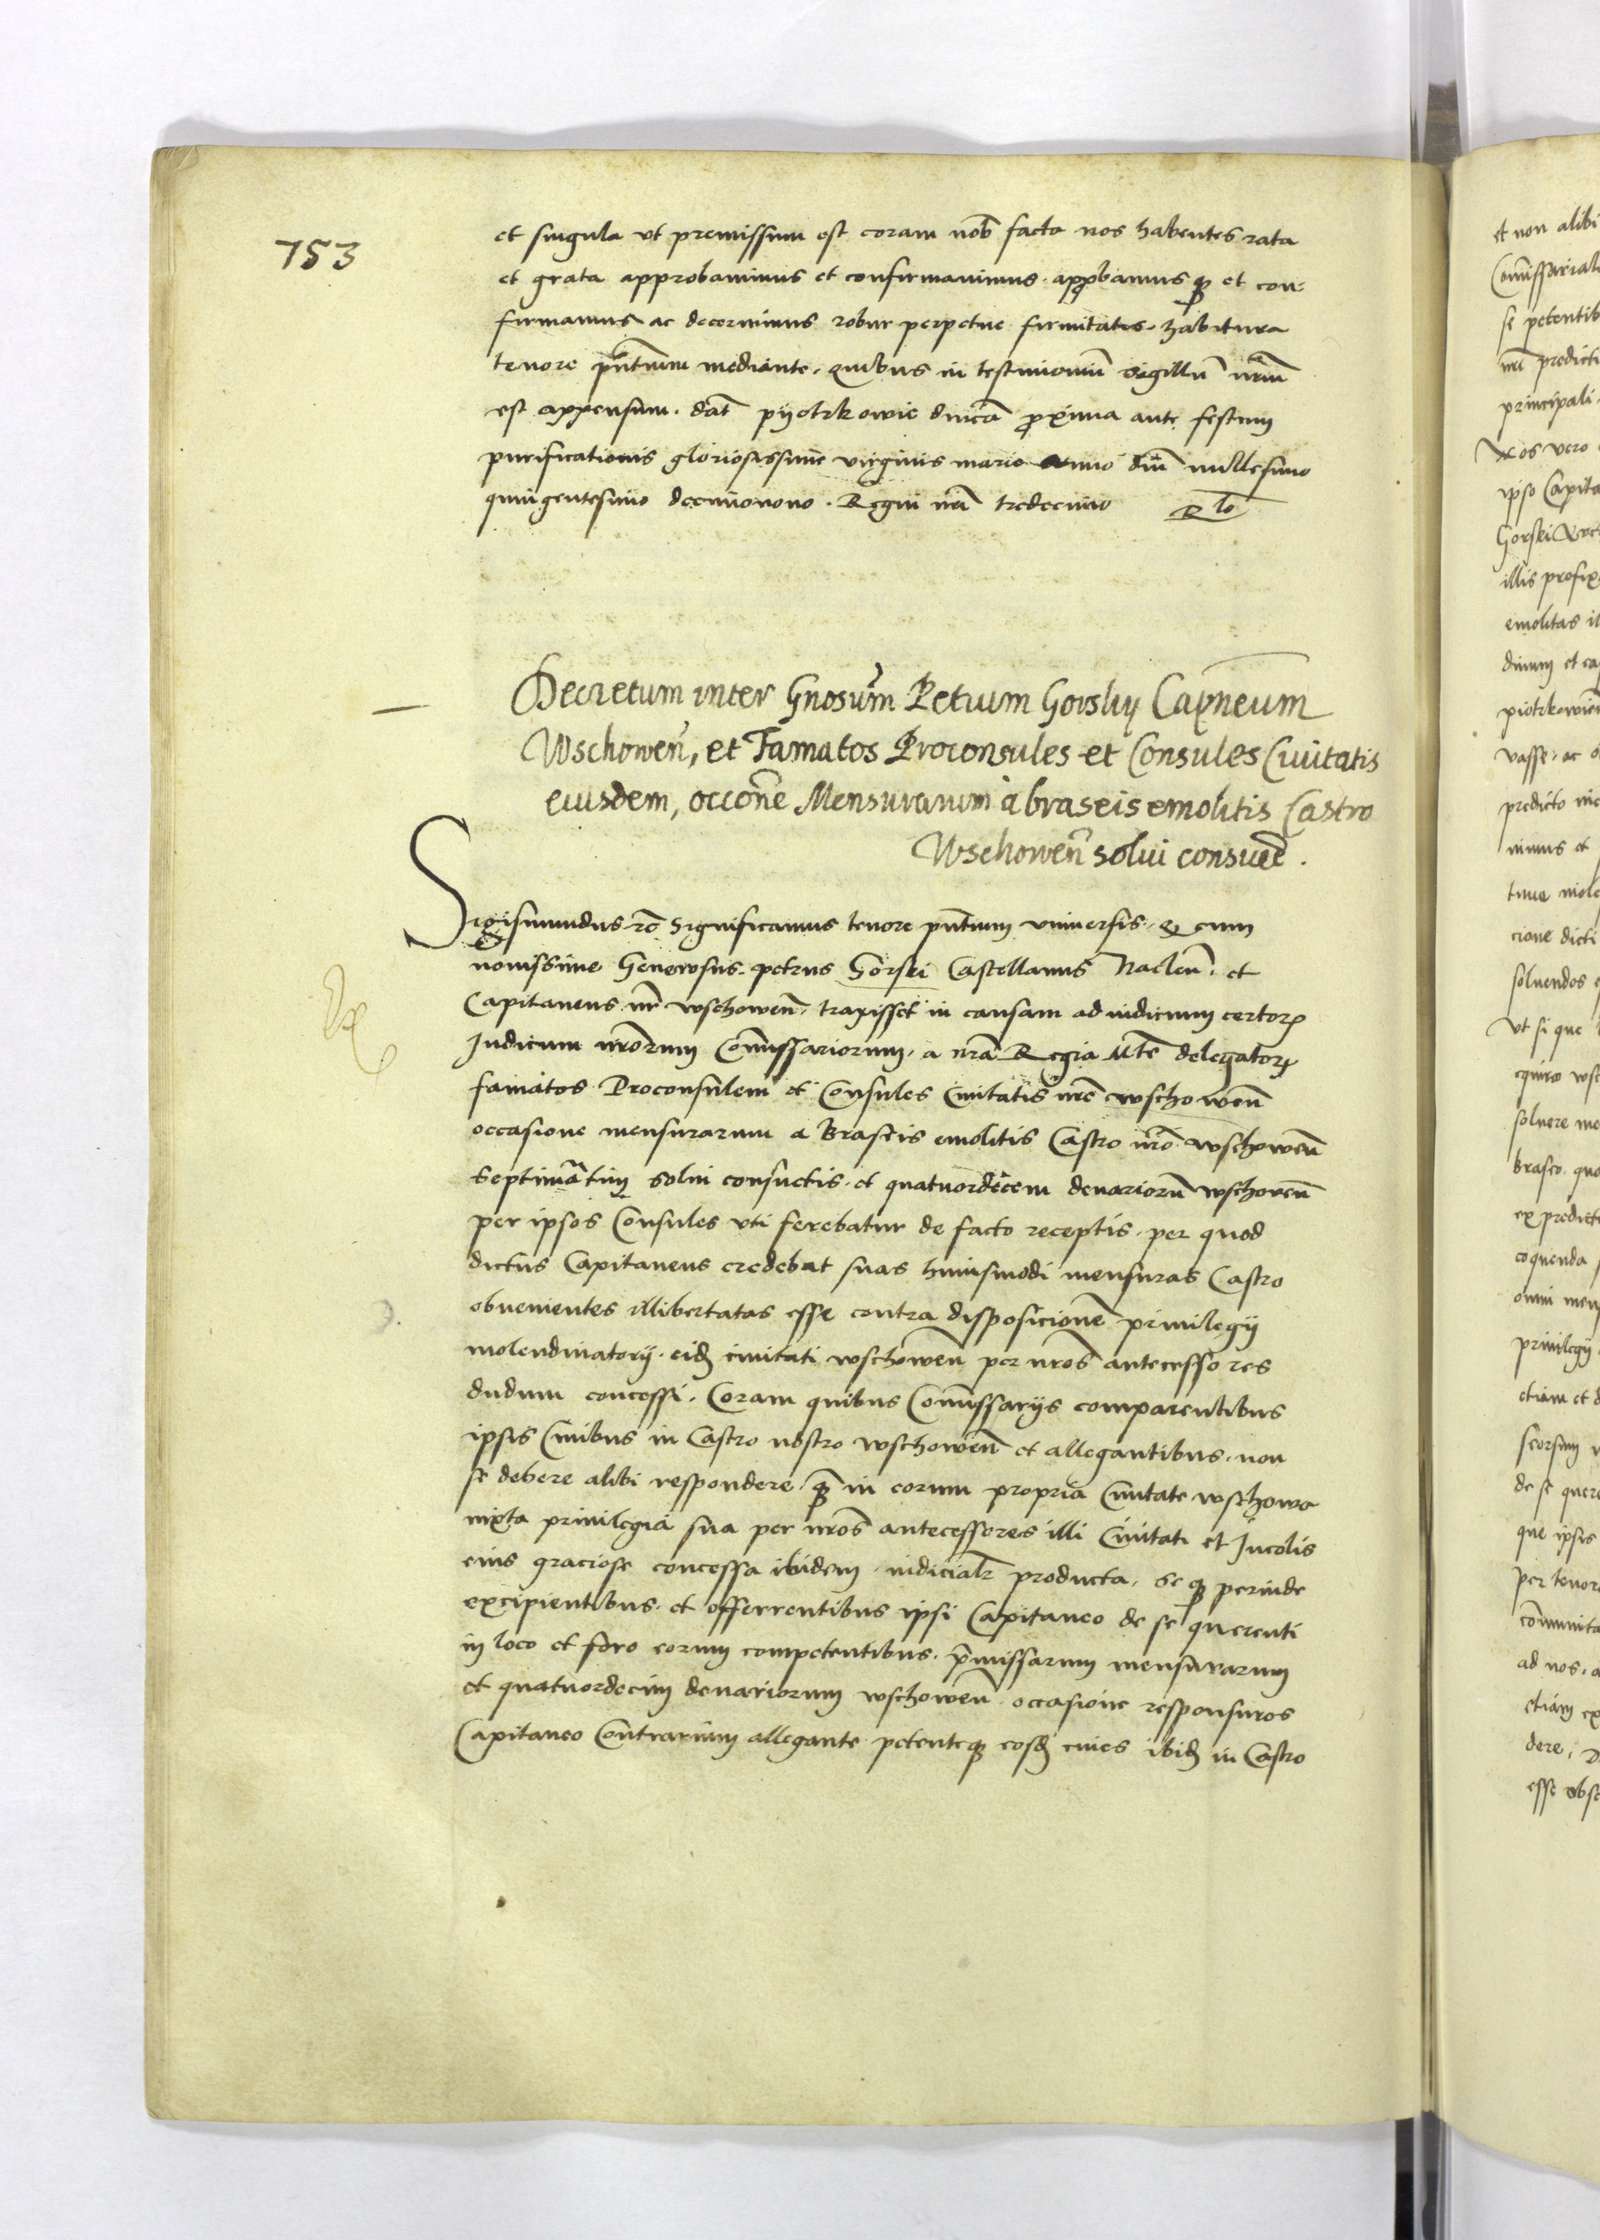 753
et singula ut premissum est coram nob facta nos habentes rata
et grata approbavimus et confirmavimus. approbamus q et con-
firmamus ac decernimus robur perpetue firmitatis. habitura
tenore pntium mediante. quibus in testimonium sigillu nrm
est appensum. dat pyotrkowie dnica proxima ante festum
purificationis gloriosissime virginis marie anno dni millesimo
quingentesimo decimonono. Regni nri tredecimo Rlo
Decretum inter Gnosum Petrum Gorsky Capneum
Wschowen, et Famatos Proconsules et Consules Civitatis
eiusdem, occone Mensurarum a braseis emolitis Castro
Wschowen solvi consuet.
Sigismundus rc Significamus tenore pntium universis. q cum
novissime Generosus petrus Gorski Castellanus Naclen. et
Capitaneus nr wschowen. traxisset in causam ad iudicium certorum
Judicum nrorum Comissariorum. a nra Regia Mte delegatorum
famatos Proconsulem et Consules Civitatis nre wschowen
occasione mensurarum a Braseis emolitis Castro nro wschowen
septimatim solui consuetis. et quatuordecem denariorum wschowen
per ipsos Consules uti ferebatur de facto receptis. per quod
dictus Capitaneus credebat suas huiusmodi mensuras Castro
obvenientes illibertatas esse contra disposicionem privilegii
molendinatorii. eid civitati wschowen per nros antecessores
dudum concessi. Coram quibus Comissariis comparentibus
ipsis Civibus in Castro nostro wschowen et allegantibus. non
se debere alibi respondere q in eorum propria Civitate wschowa
iuxta privilegia sua per nros antecessores illi Civitati et Incolis
eius graciose concessa ibidem iudicialr producta. se q perinde
excipientibus. et offerrentibus ipsi Capitaneo de se querenti
in loco et foro eorum competentibus. pmissarum mensurarum
et quatuordecim denariorum wschowen occasione responsuros
Capitaneo Contrarium allegante petenteq eosd cives ibid in Castro
et non alibi
se petentib
nri predicti
principali
Nos vero
ipso Capita
Gorski
illis prefix
emolitas
dinum et
piotrkowien
vasse. ac
predicto
nimus et
cione dicti
solvendos
Ut si que
solvere
braseo
ex predict
coquenda
omni men
privilegii
etiam et
seorsum
de se quere
que ipsis
per tenore
communita
ad nos.
etiam ex
dere,
esse obse